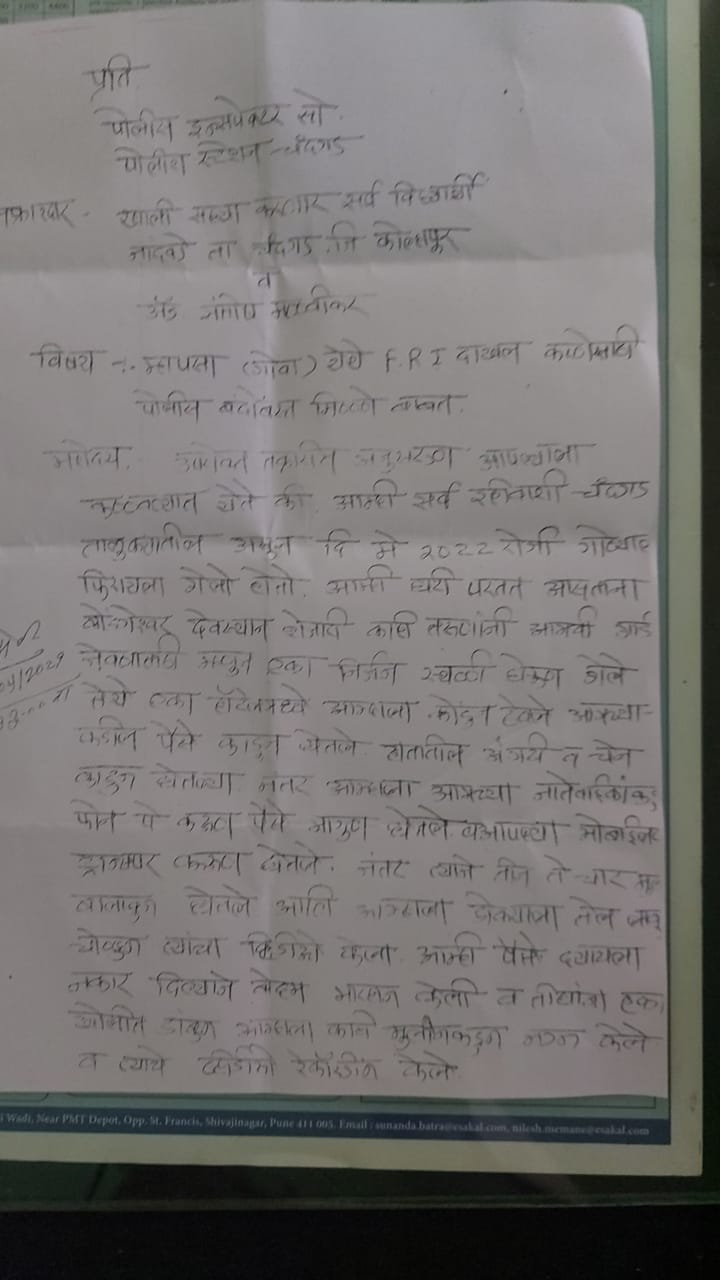 प्रति,
पोलीस इन्स्पेक्टर सो.
पोलीस स्टेशन चंदगड
तक्रारदार - खाली सह्या करणार सर्व विद्यार्थी
ता चंदगड जि कोल्हापूर
व
अॅड
विषय :- म्हापसा (गोवा) येथे F.R.I दाखल करणेसाठी
पोलीस बंदोबस्त मिळणे बाबत.
महोदय, उपरोक्त तक्रारीत अनुसरून आपल्याला
कळवण्यात येते की, आम्ही सर्व रहिवाशी चंदगड
तालुक्यातील असून दि मे 2022 रोजी गोव्याला
फिरायला गेलो होतो. आम्ही घरी परतत असताना
देवस्थान शेजारी काही तरुणांनी आमची गाडी
एका निर्जन स्थळी घेऊन गेले
तेथे एका हॉटेलमध्ये आम्हाला कोंडून ठेवले आमच्या-
कडील पैसे काढून घेतले. हातातील अंगठी व चेन
काढून घेतल्या. नंतर आम्हाला आमच्या नातेवाईकांकडून
फोन पे करून पैसे मागून घेतले व आपल्या मोबाईलवर
ट्रान्सफर करून घेतले. नंतर त्याने तीन ते चार
बोलावून घेतले आणि आम्हाला डोक्याला तेल
त्यांचा व्हिडिओ केला. आम्ही पैसे द्यायला
नकार दिल्याने बेदम मारहाण केली व तीघांना एका
खोलीत डांबून आम्हाला काही मुलींकडून नग्न केले
व त्याचे व्हिडीओ रेकॉर्डींग केले.
Wadi, Near PMT Depot, Opp. St. Francis, Shivajinagar, Pune 411 005. Email : sunanda.batra@esakal.com, nilesh.memane@esakal.com